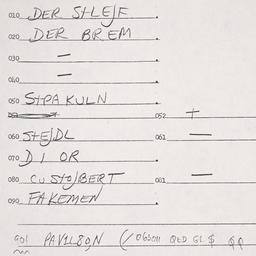 010 DER STLEJF
020 DER BREM
030 —
040 —
050 STPAKULN
052 +
060 STEJDL 061 —
070 DIOR
080 CUSTOJBERT 081 —
090 FAKEMEN
901 PAVILSON